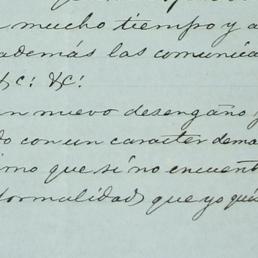 mucho tiempo y a
además las comunica
&c: &c:
un nuevo desengaño y
do con un caracter dema
ismo que si no encuent
formalidad que yo qui